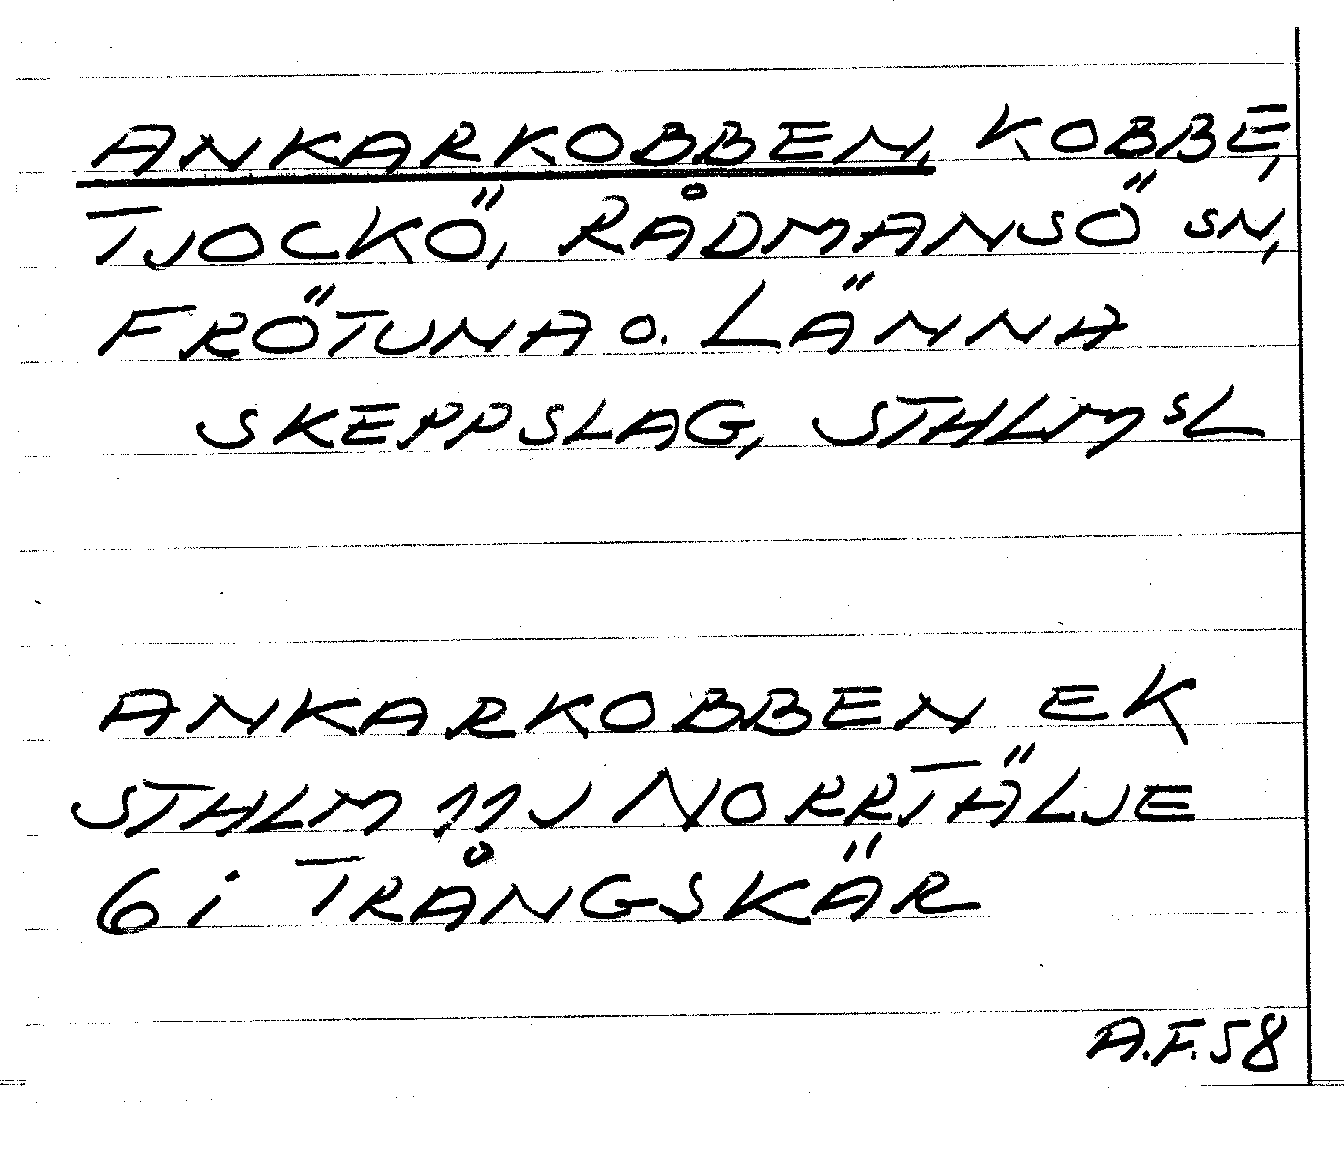 ANKARKOBBEN, KOBBE,
TJOCKÖ, RÅDMANSÖ SN,
FRÖTUNA O. LÄNNA
SKEPPSLAG, STHLM SL
ANKARKOBBEN EK
STHLM 11J NORRTÄLJE
6i TRÅNGSKÄR
A.F.58